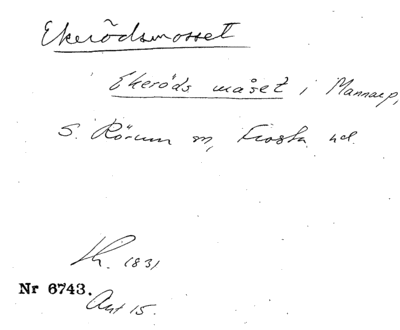 Ekerödsmosset
Ekeröds måset i Mannarp,
S. Rörum sn, Frosta hd.
Lh. 1831
Nr 6743.
Akt 15.